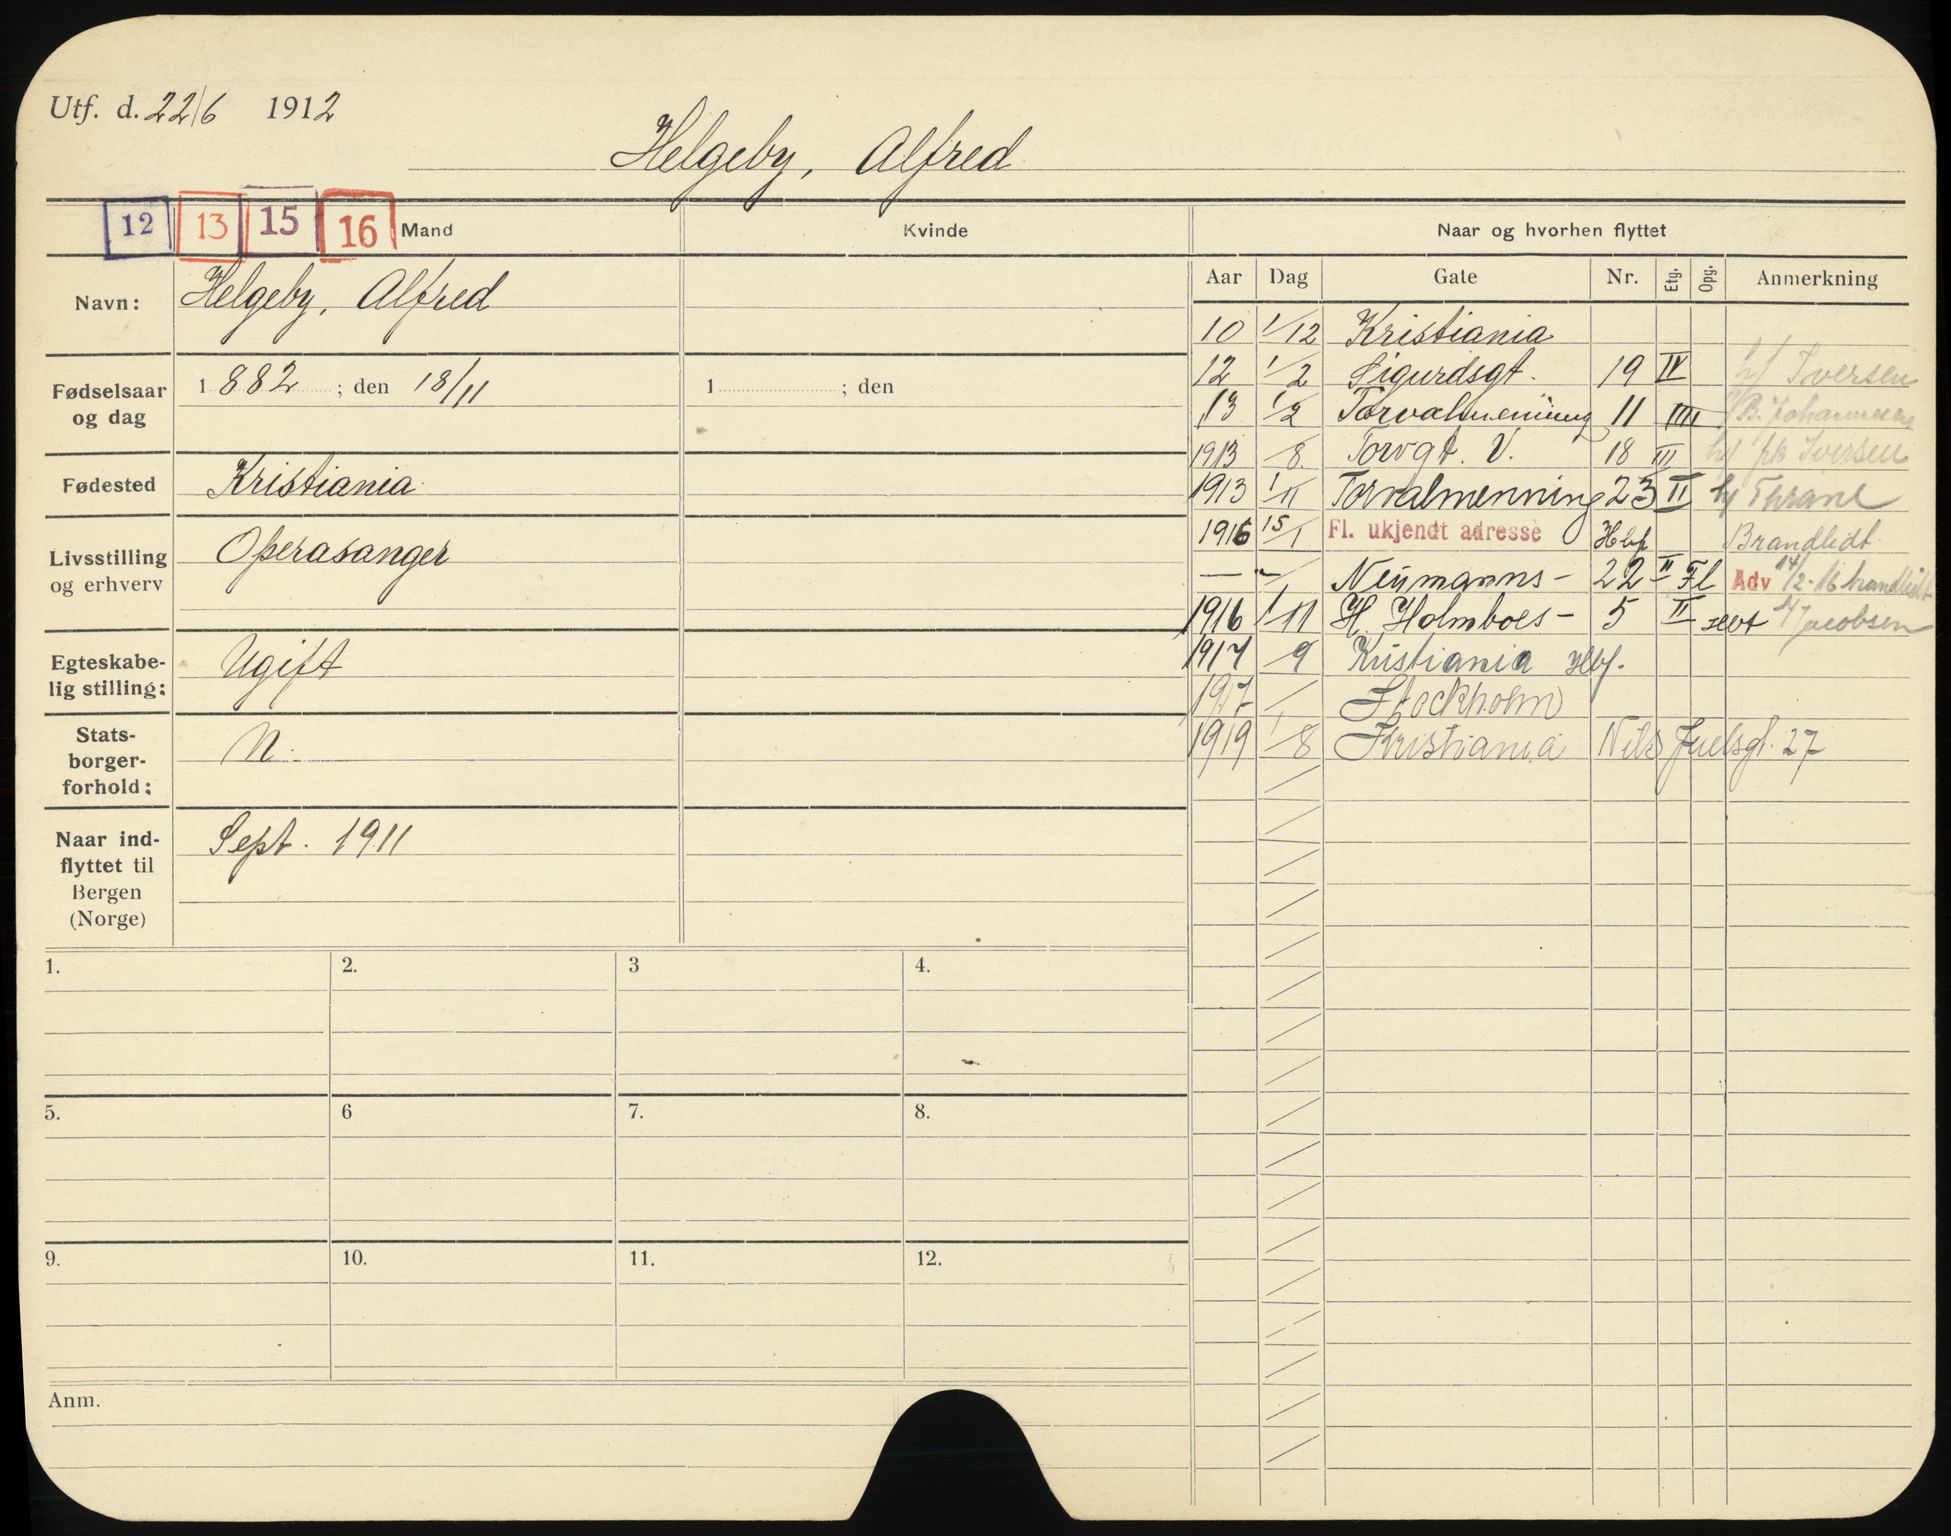 Utf. d. 22/6 1912
Helgeby, Alfred
12 13 15 16 Mand Kvinde Naar og hvorhen flyttet
Aar Dag Gate Nr. Etg. Opg. Anmerkning
Navn: Helgeby, Alfred
Fødselsaar og dag 1882 ; den 18/11 1 ; den
Fødested Kristiania
Livsstilling og erhverv Operasanger
Egteskabe-
lig stilling: Ugift
Stats-
borger-
forhold: N.
Naar ind-
flyttet til
Bergen
(Norge) Sept. 1911
10 1/12 Kristiania
12 1/2 Sigurdsgt. 19 IV Iversen
13 1/2 Torvalmenning 11 IIII B. Johannesen
1913 /8 Torvgt. V. 18 III frk Iversen
1913 1/11 Torvalmenning 23 II Thrane
1916 15/1 Fl. ukjendt adresse Hbf Brandlidt.
— " / Neumanns- 22 II Fl Adv 14/2-16 brandlidt
1916 1/11 H. Holmboes- 5 II Jacobsen
1917 /9 Kristiania Hbf.
1917 / Stockholm
1919 1/8 Kristiania Nils Juelsgt. 27
1. 2. 3 4.
5. 6 7. 8.
9. 10. 11. 12.
Anm.